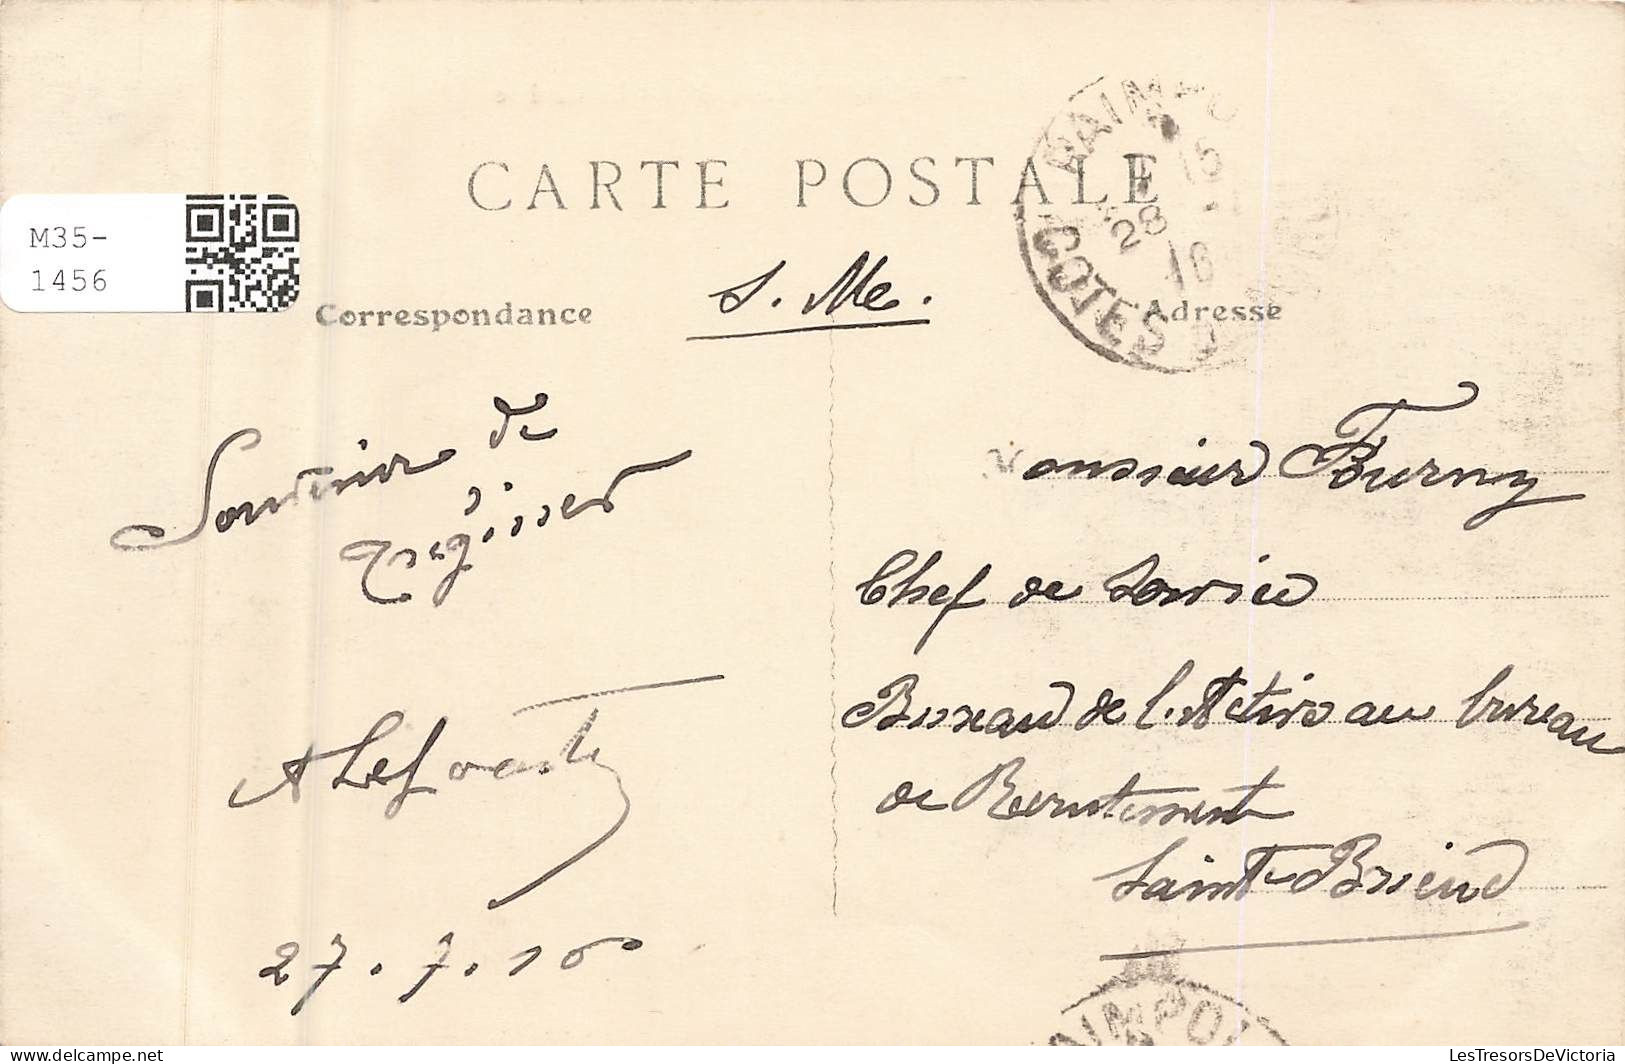 CARTE POSTALE
PAIMPO
15
28
16
COTES D
M35-
1456
S. Me.
Correspondance
Adresse
Souvenir de
Monsieur Fourny
Chef de Service
Bureau de l'Active au bureau
de Recrutement
Saint-Brieuc
27.7.16
AIMPOL
delcampe.net
LesTresorsDeVictoria